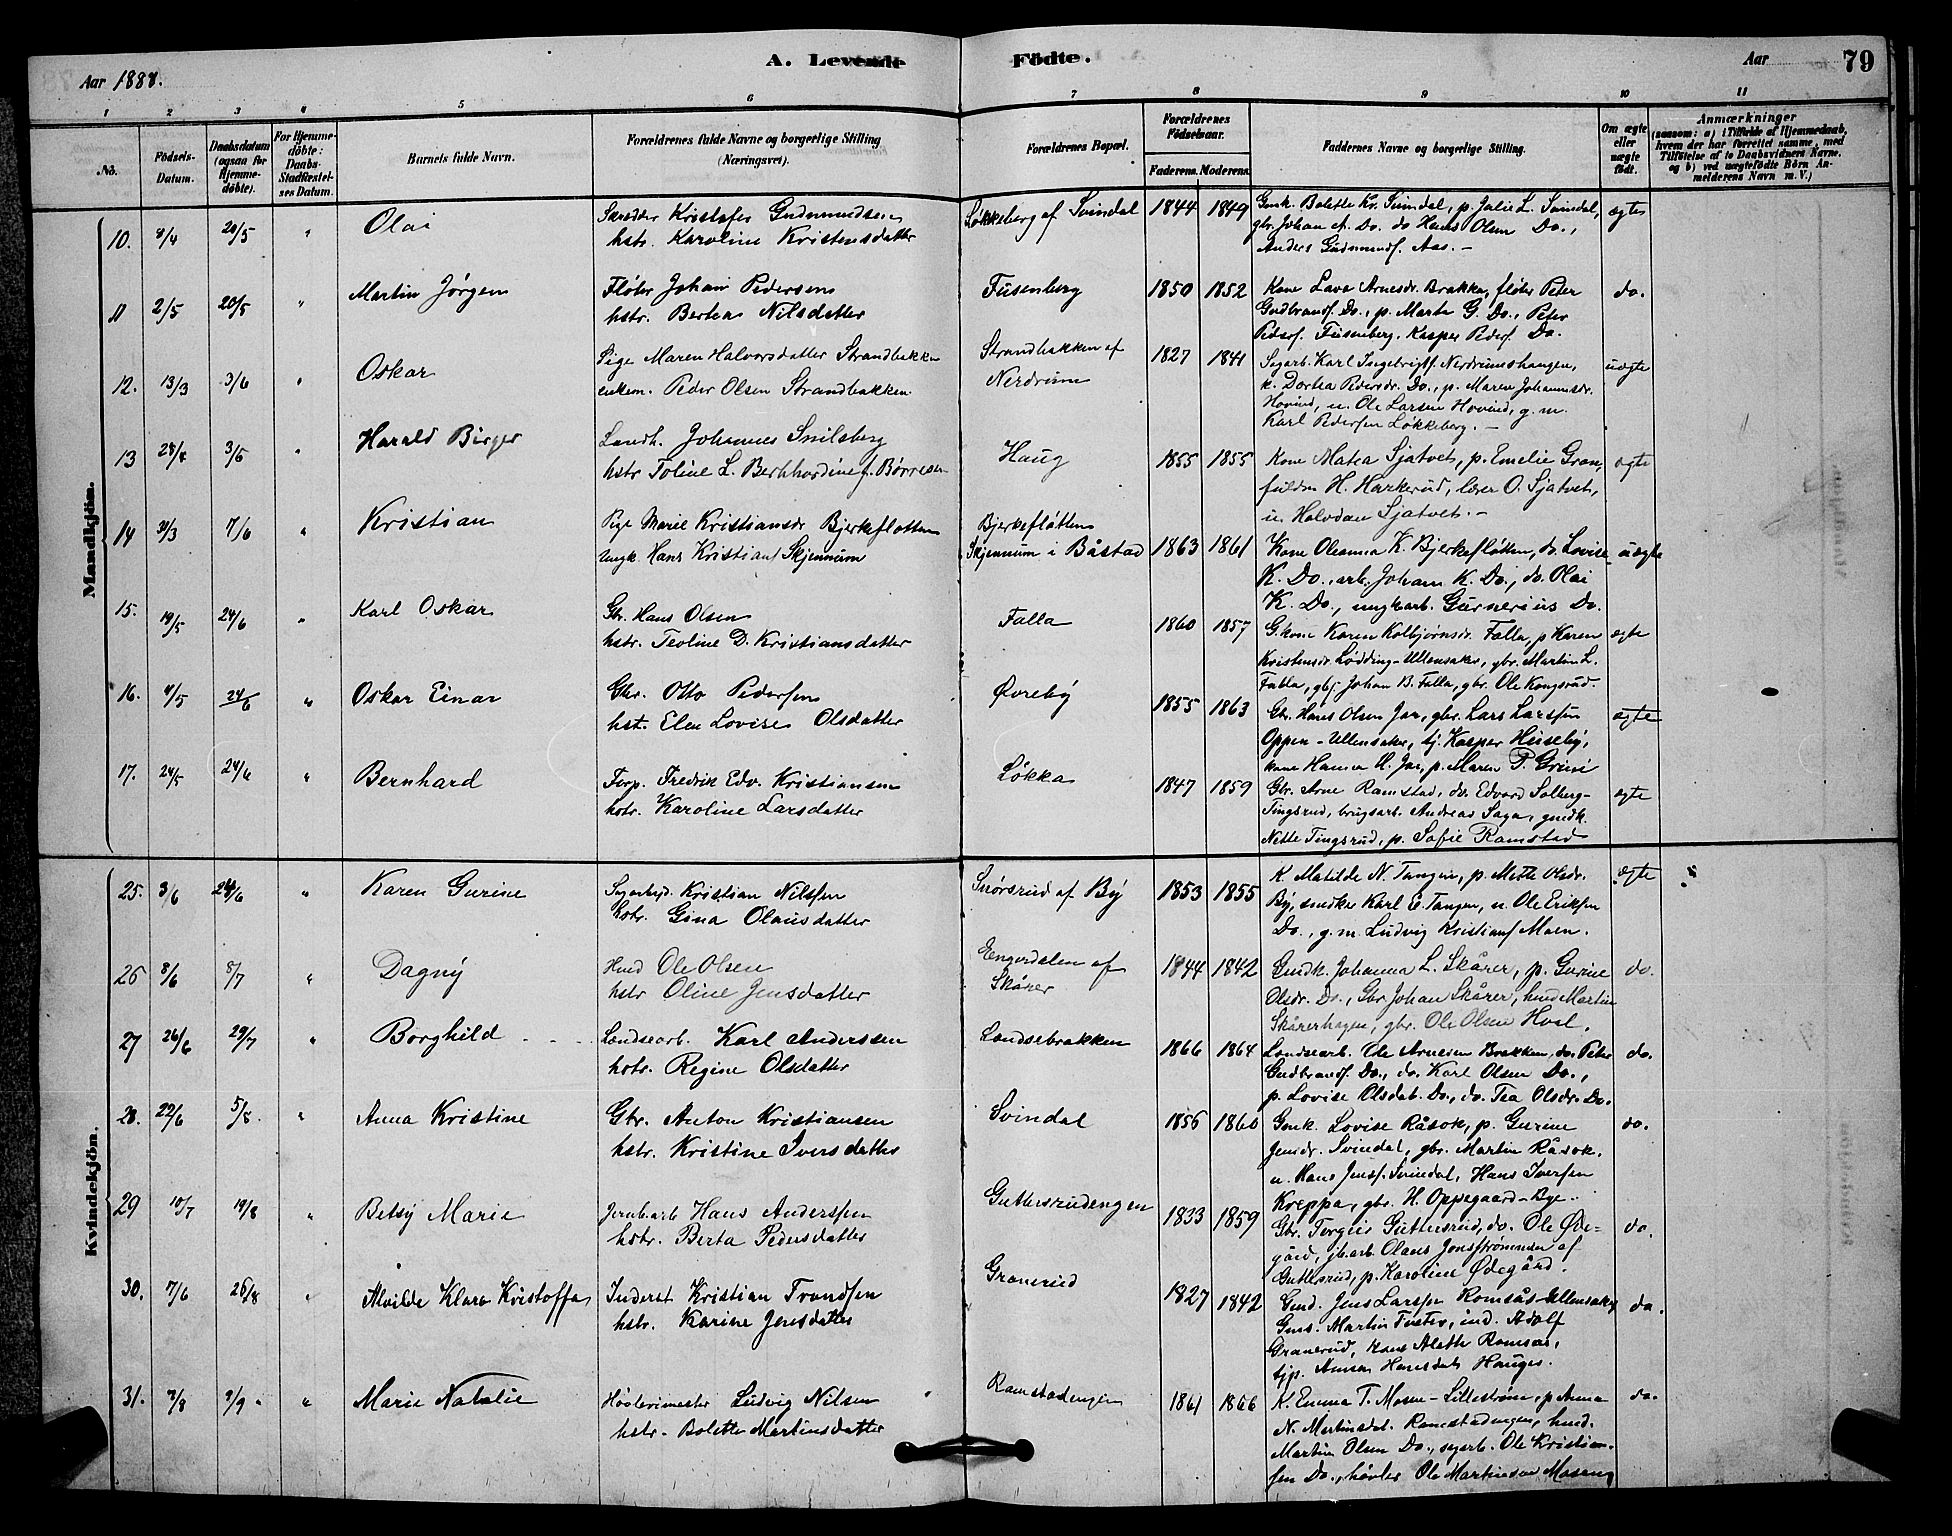 Aar 1888.
A. Levende Födte.
Aar
79
1 2 3 4 5 6 7 8 9 10 11
No.
Födsels-Datum.
Daabsdatum (ogsaa for Hjemmedöbte).
For Hjemmedöbte: Daabs-Stadfæstelses Datum.
Barnets fulde Navn.
Forældrenes fulde Navne og borgerlige Stilling (Næringsvei).
Forældrenes Bopæl.
Forældrenes Födselsaar.
Faderens. Moderens.
Faddernes Navne og borgerlige Stilling.
Om ægte eller uægte födt.
Anmærkninger
(saasom: a) i Tilfælde af Hjemmedaab, hvem der har forrettet samme, med Tilföielse af to Daabsvidners Navne, og b) ved uægtefödte Börn Anmelderens Navn m. V.)
Mandkjön.
10. 8/4 20/5 " Olai
Skrædder Kristofer Gudmundsen
hstr. Karoline Kristensdatter
Løkkeberg af Svindal 1844 1849
Gmk. Bolette Kr. Svindal, p. Julie L. Svindal,
gbr. Johan A. Do. do Hans Olsen Do.,
Anders Gudmunds. Aas. -
ægte
11 2/5 20/5 " Martin Jørgen
Fløter Johan Pedersen
hstr. Bertea Nilsdatter
Fusenberg 1850 1852
Kone Lava Arnesdr. Brakka, fløter Peter
Gudbrands. Do., p. Marte G. Do., Peter
Peders. Fusenberg, Kasper Peders. Do.
do.
12. 13/3 3/6 " Oskar
Pige Maren Halvorsdatter Strandbakken
enkem. Peder Olsen Strandbakken
Strandbakken af
Nerdrum 1827 1841
Sagarb. Karl Ingebrigts. Nerdrumshaugen,
k. Dortea Pedersdr. Do., p. Maren Johannsdr.
Hovind, u. Ole Larsen Hovind, g. m.
Karl Pedersen Løkkeberg. -
uægte
13 28/4 3/6 " Harald Birger
Landh. Johannes Snilsberg
hstr Toline L. Bernhardine f. Børresen
Haug 1855 1855
Kone Matea Sjatvet, p. Emelie Gran,
fuldm H. Harkerud, lærer O. Sjatvet,
u. Halvdan Sjatvet. -
ægte
14 30/3 7/6 " Kristian
Pige Marie Kristiansdr Bjerkefløtten
Ungk. Hans Kristians Skjennum
Bjerkefløtten
Skjennum i Båstad 1863 1861
Kone Oleanna K. Bjerkefløtten, do. Lovise
K. Do., arb. Johan K. Do., do. Olai
K. Do., ungkarl. Gurnerius Do.
uægte
15. 19/5 24/6 " Karl Oskar
Gbr. Hans Olsen
hstr. Teoline D. Kristiansdatter
Falla 1860 1857
G.kone Karen Kolbjørnsdr. Falla, p Karen
Kristensdr. Lødding-Ullensaker, gbr. Martin L.
Falla, gbr. Johan B. Falla, gbr. Ole Kongsrud.
ægte
16. 4/5 24/6 " Oskar Einar
Gbr. Otto Pedersen
hst. Elen Lovise Olsdatter
Øvreby 1855 1863
Gbr. Hans Olsen Jar, gbr. Lars Larssen
Oppen-Ullensaker, tj. Kasper Huseby,
kone Hanna M. Jar, p. Maren P. Grini
ægte
17. 24/5 24/6 " Bernhard
Forp. Fredrik Edv. Kristiansen
hstr. Karoline Larsdatter
Løkka 1847 1859
Gbr. Arne Ramstad, do. Edvard Solberg-
Tingsrud, brugsarb. Andreas Saga, gmdk.
Nette Tingsrud, p. Sofie Ramstad
ægte
Kvindekjön.
25. 3/6 24/6 " Karen Gurine
Sagarbejd. Kristian Nilssen
hstr. Gina Olausdatter
Snørsrud af By 1853 1855
K. Matilde N. Tangen, p. Mette Olsdr.
By, snedker Karl E. Tangen, u. Ole Eriksen
Do., g. m. Ludvig Kristians Moen.
ægte
26 8/6 8/7 " Dagny
Husd Ole Olsen
hstr Oline Jensdatter
Engerdalen af
Skårer 1844 1842
Gmdk. Johanna L. Skårer, p. Gurine
Olsdr. Do., Gbr Johan Skårer, husd Martin
Skårerhagen, gbr. Ole Olsen Hval.
do.
27 26/6 29/7 " Borghild
Lændsearb. Karl Anderssen
hstr. Regine Olsdatter
Lændsebrakken 1866 1864
Lændsearb. Ole Arnesen Brakken, do. Peter
Gudbrands. Do., do. Karl Olsen Do.,
p. Lovise Olsdat. Do., do. Tea Olsdr. Do.
do.
28. 22/6 5/8. " Anna Kristine
Gbr. Anton Kristiansen
hstr. Kristine Iversdatter
Svindal 1856 1860
Gmk. Lovise Råsok, p. Gurine
Jensdr. Svindal, gbr. Martin Råsok,
u. Hans Jens. Svindal, Hans Iversen
Kreppa, gbr. H. Oppegaard-Bye.
do.
29 10/7 19/8 " Betsy Marie
Jernb.arb Hans Anderssen
hstr. Berta Pedersdatter
Guttersrudengen 1833 1859
Gbr. Torgeir Guttersrud, do. Ole Øde-
gård, jb.arb. Olaus Jonsstrømmen af
Guttersrud, p. Karoline Ødegård.
do.
30. 7/6 26/8 " Alvilde Klara Kristoffa
Inderst Kristian Trondsen
hstr. Karine Jensdatter
Granerud 1827 1842
Gmd. Jens Larsen Romsås-Ullensaker
Gms. Martin Foster, ind. Adolf
Granerud, kone Alette Romsås,
tjp. Anna Hansdat. Hauger.
do.
31. 7/8 9/9 " Marie Natalie
Høvlerimester Ludvig Nilsen
hstr. Bolette Martinsdatter
Ramstadengen 1861 1866
K. Emma T. Moen-Lillestrøm, p Anna
N. Martinsdat. Ramstadengen, husd.
Martin Olsen Do., sagarb. Ole Kristian-
sen Do., høvler Ole Martinsen Moseng
do.